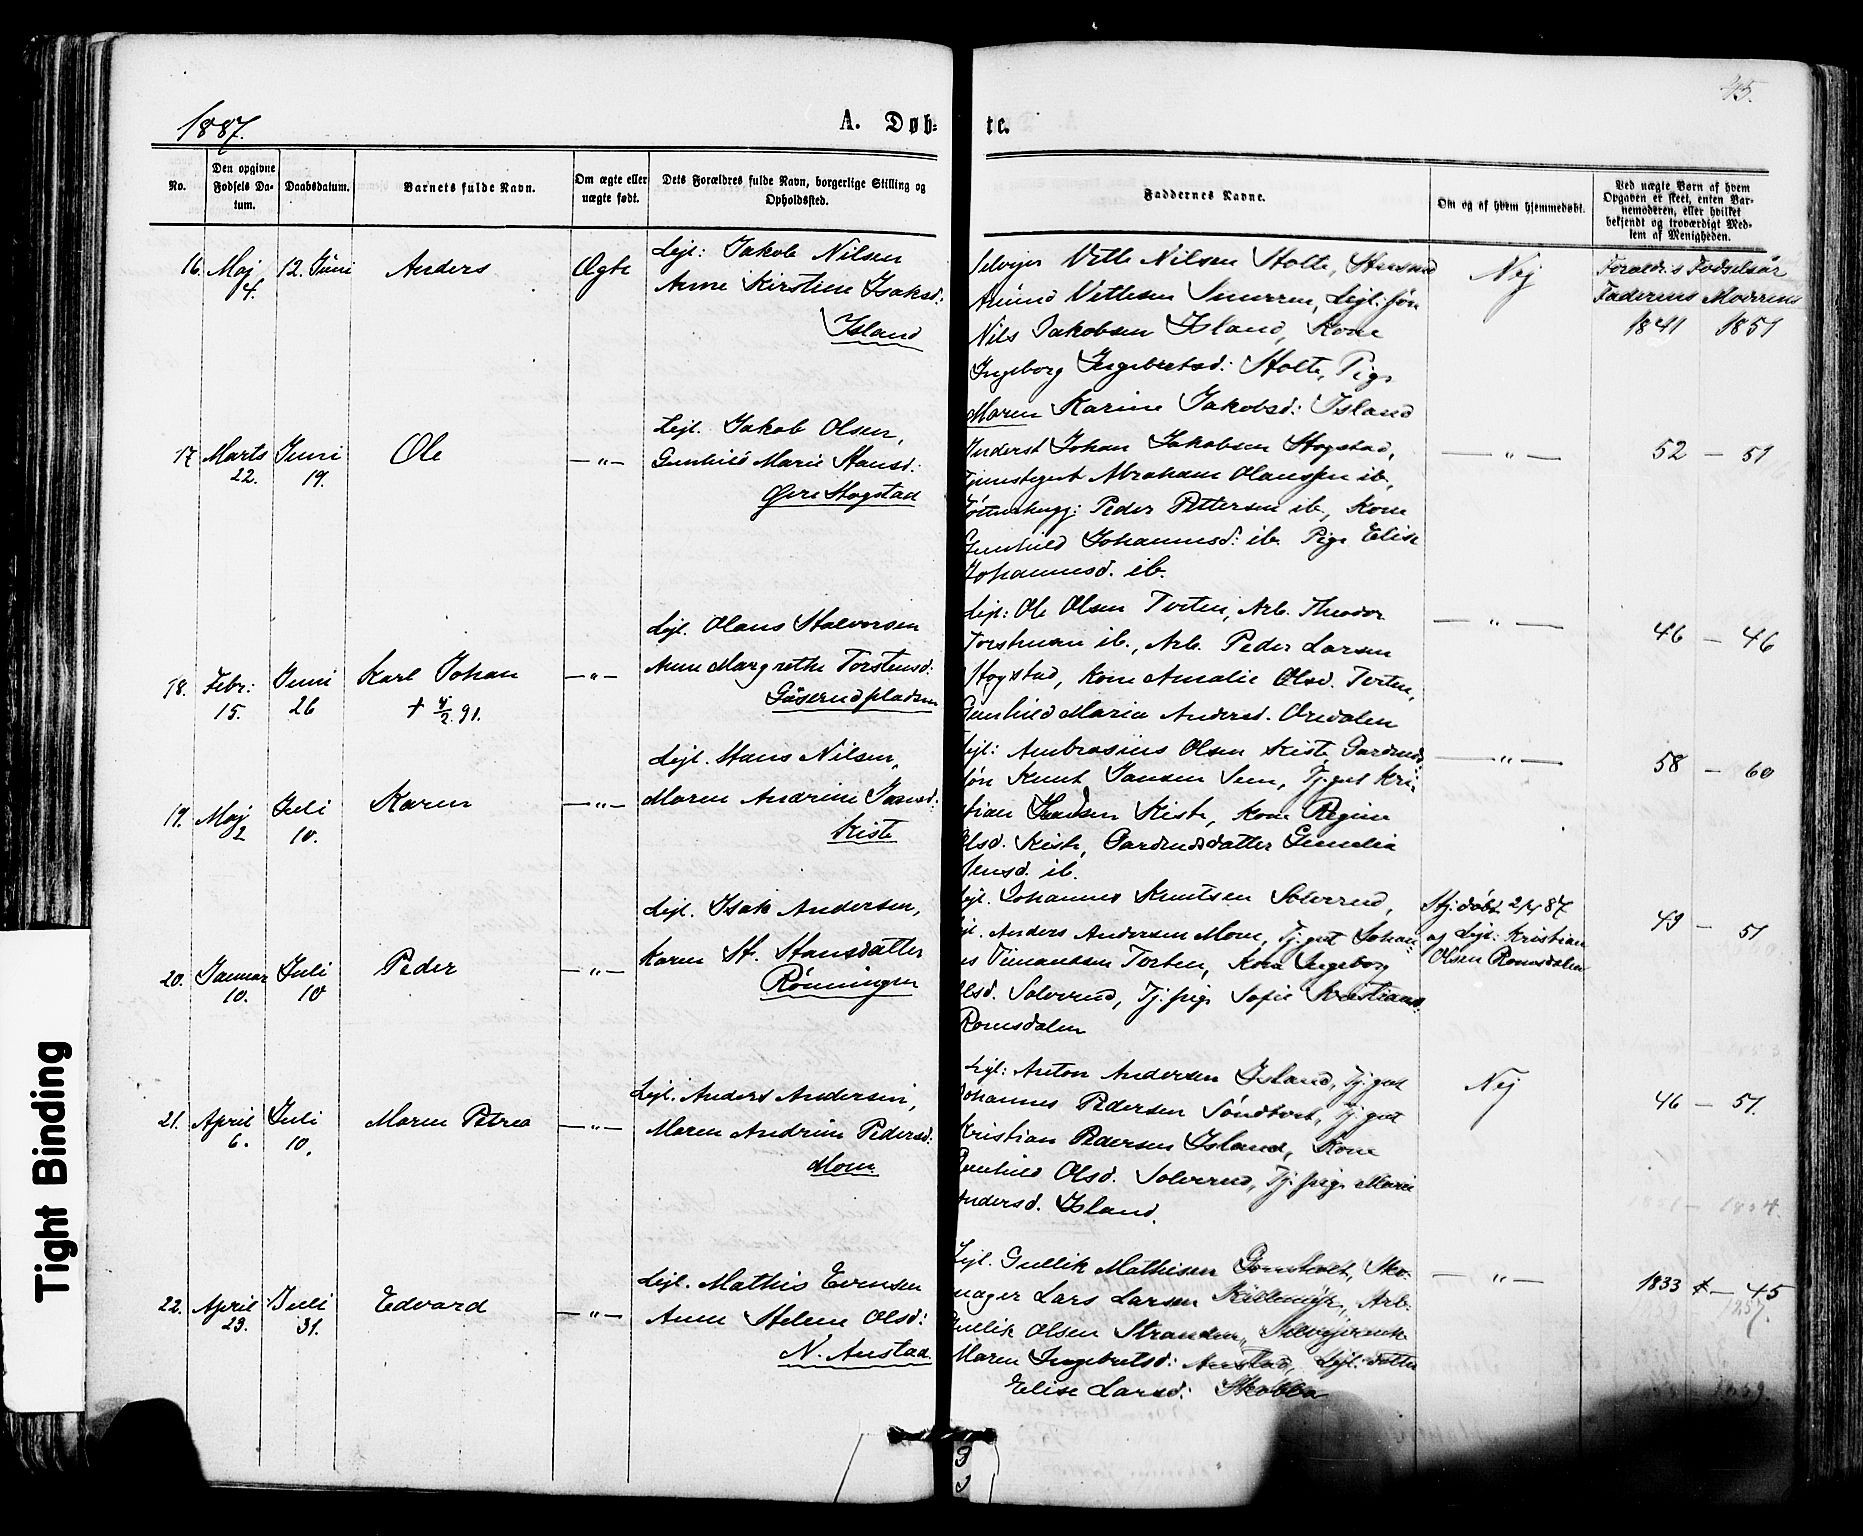 45.
1887.
A. Døb- te.
No.
Den opgivne Fødsels Da-tum.
Daabsdatum.
Barnets fulde Navn.
Om ægte eller uægte født.
Dets Forældres fulde Navn, borgerlige Stilling og Opholdssted.
Faddernes Navne.
Om og af hvem hjemmedøbt.
Ved uægte Børn af hvem
Opgaven er skeet, enten Bar-
nemoderen, eller hvilket
bekjendt og troværdigt Med-
lem af Menigheden.
16. Maj 4. 12. Juni Anders Ægte
Lejl: Jakob Nilsen
Anne Kirstine Isaksd:
Island
Selvejer Vetle Nilsen Holte,
Amund Vetlesen Lejl: søn
Nils Jakobsen Island, Kone
Ingeborg Ingebretsd: Holte, Pige
Maren Karine Jakobsd: Island
Nej
Forældr:s Fødselsår
Faderens Moderens
1841 1851
17 Marts 22. Juni 19. Ole — " —
Lejl. Jakob Olsen,
Gunhild Marie Hansd:
Øvre Hogstad
Inderst Johan Jakobsen Hogstad,
Tjenstegut Abraham Olaussen ib,
Peder Pettersen ib, Kone
Gunhild Johannesd: ib. Pige Elise
Johannesd. ib.
— " —
52 — 51
18. Febr: 15. Juni 26 Karl Johan — " —
+ 4/2 91.
Lejl. Olaus Halvorsen
Anne Margrethe Torstensd:
Gåserudpladsen
Lejl: Ole Olsen Torten, Arb. Theodor
Torstensen ib., Arb. Peder Larsen
Hogstad, Kone Amalie Olsd. Torten,
Gunhild Maria Andersd. Oredalen
— " —
46 — 46
19. Maj 2 Juli 10. Karen — " —
Lejl. Hans Nilsen,
Maren Andrine Jansd:
Kiste
Lejl: Ambrosius Olsen Kiste, Gardmds
søn Knut Jansen Sem, Tj. gut Kri-
stian Kiste, Kone Regine
Olsd. Kiste, Gardmdsdatter
Jensd. ib.
— " —
58 — 60
20. Januar 10. Juli 10 Peder — " —
Lejl. Isak Andersen,
Karen St. Hansdatter
Rönningen
Lejl. Johannes Knutsen Solverud,
Lejl. Anders Andersen Moen, Tj. gut Johan-
nes Timandsen Torten, Kone Ingeborg
Olsd. Solverud, Tj. pige Sofie Kristians:
Romsdalen
Hj. döbt 2/4 87
af Lejl: Kristian
Olsen Romsdalen
49 — 51
21. April 6. Juli 10. Maren Petrea — " —
Lejl. Anders Andersen,
Maren Andrine Pedersd:
Moen
Lejl: Anton Andersen Island, Tj. gut
Johannes Pedersen Söndtvet, Tj. gut
Kristian Pedersen Island, Kone
Gunhild Olsd. Solverud, Tj. pige Marie
Andersd. Island.
Nej
46 — 51.
22. April 23. Juli 31. Edvard — " —
Lejl. Mathis Evensen
Anne Helene Olsd:
N. Austad
Lejl. Gullik Mathisen Gomsholt, Sko-
mager Lars Larsen Killemyr, Arb:
Gullik Olsen Stranden, Selvejerenke
Maren Ingebretsd: Austad, Lejl: datter
Elise Larsd: Skobba
— " —
1833 — 45
Tight Binding